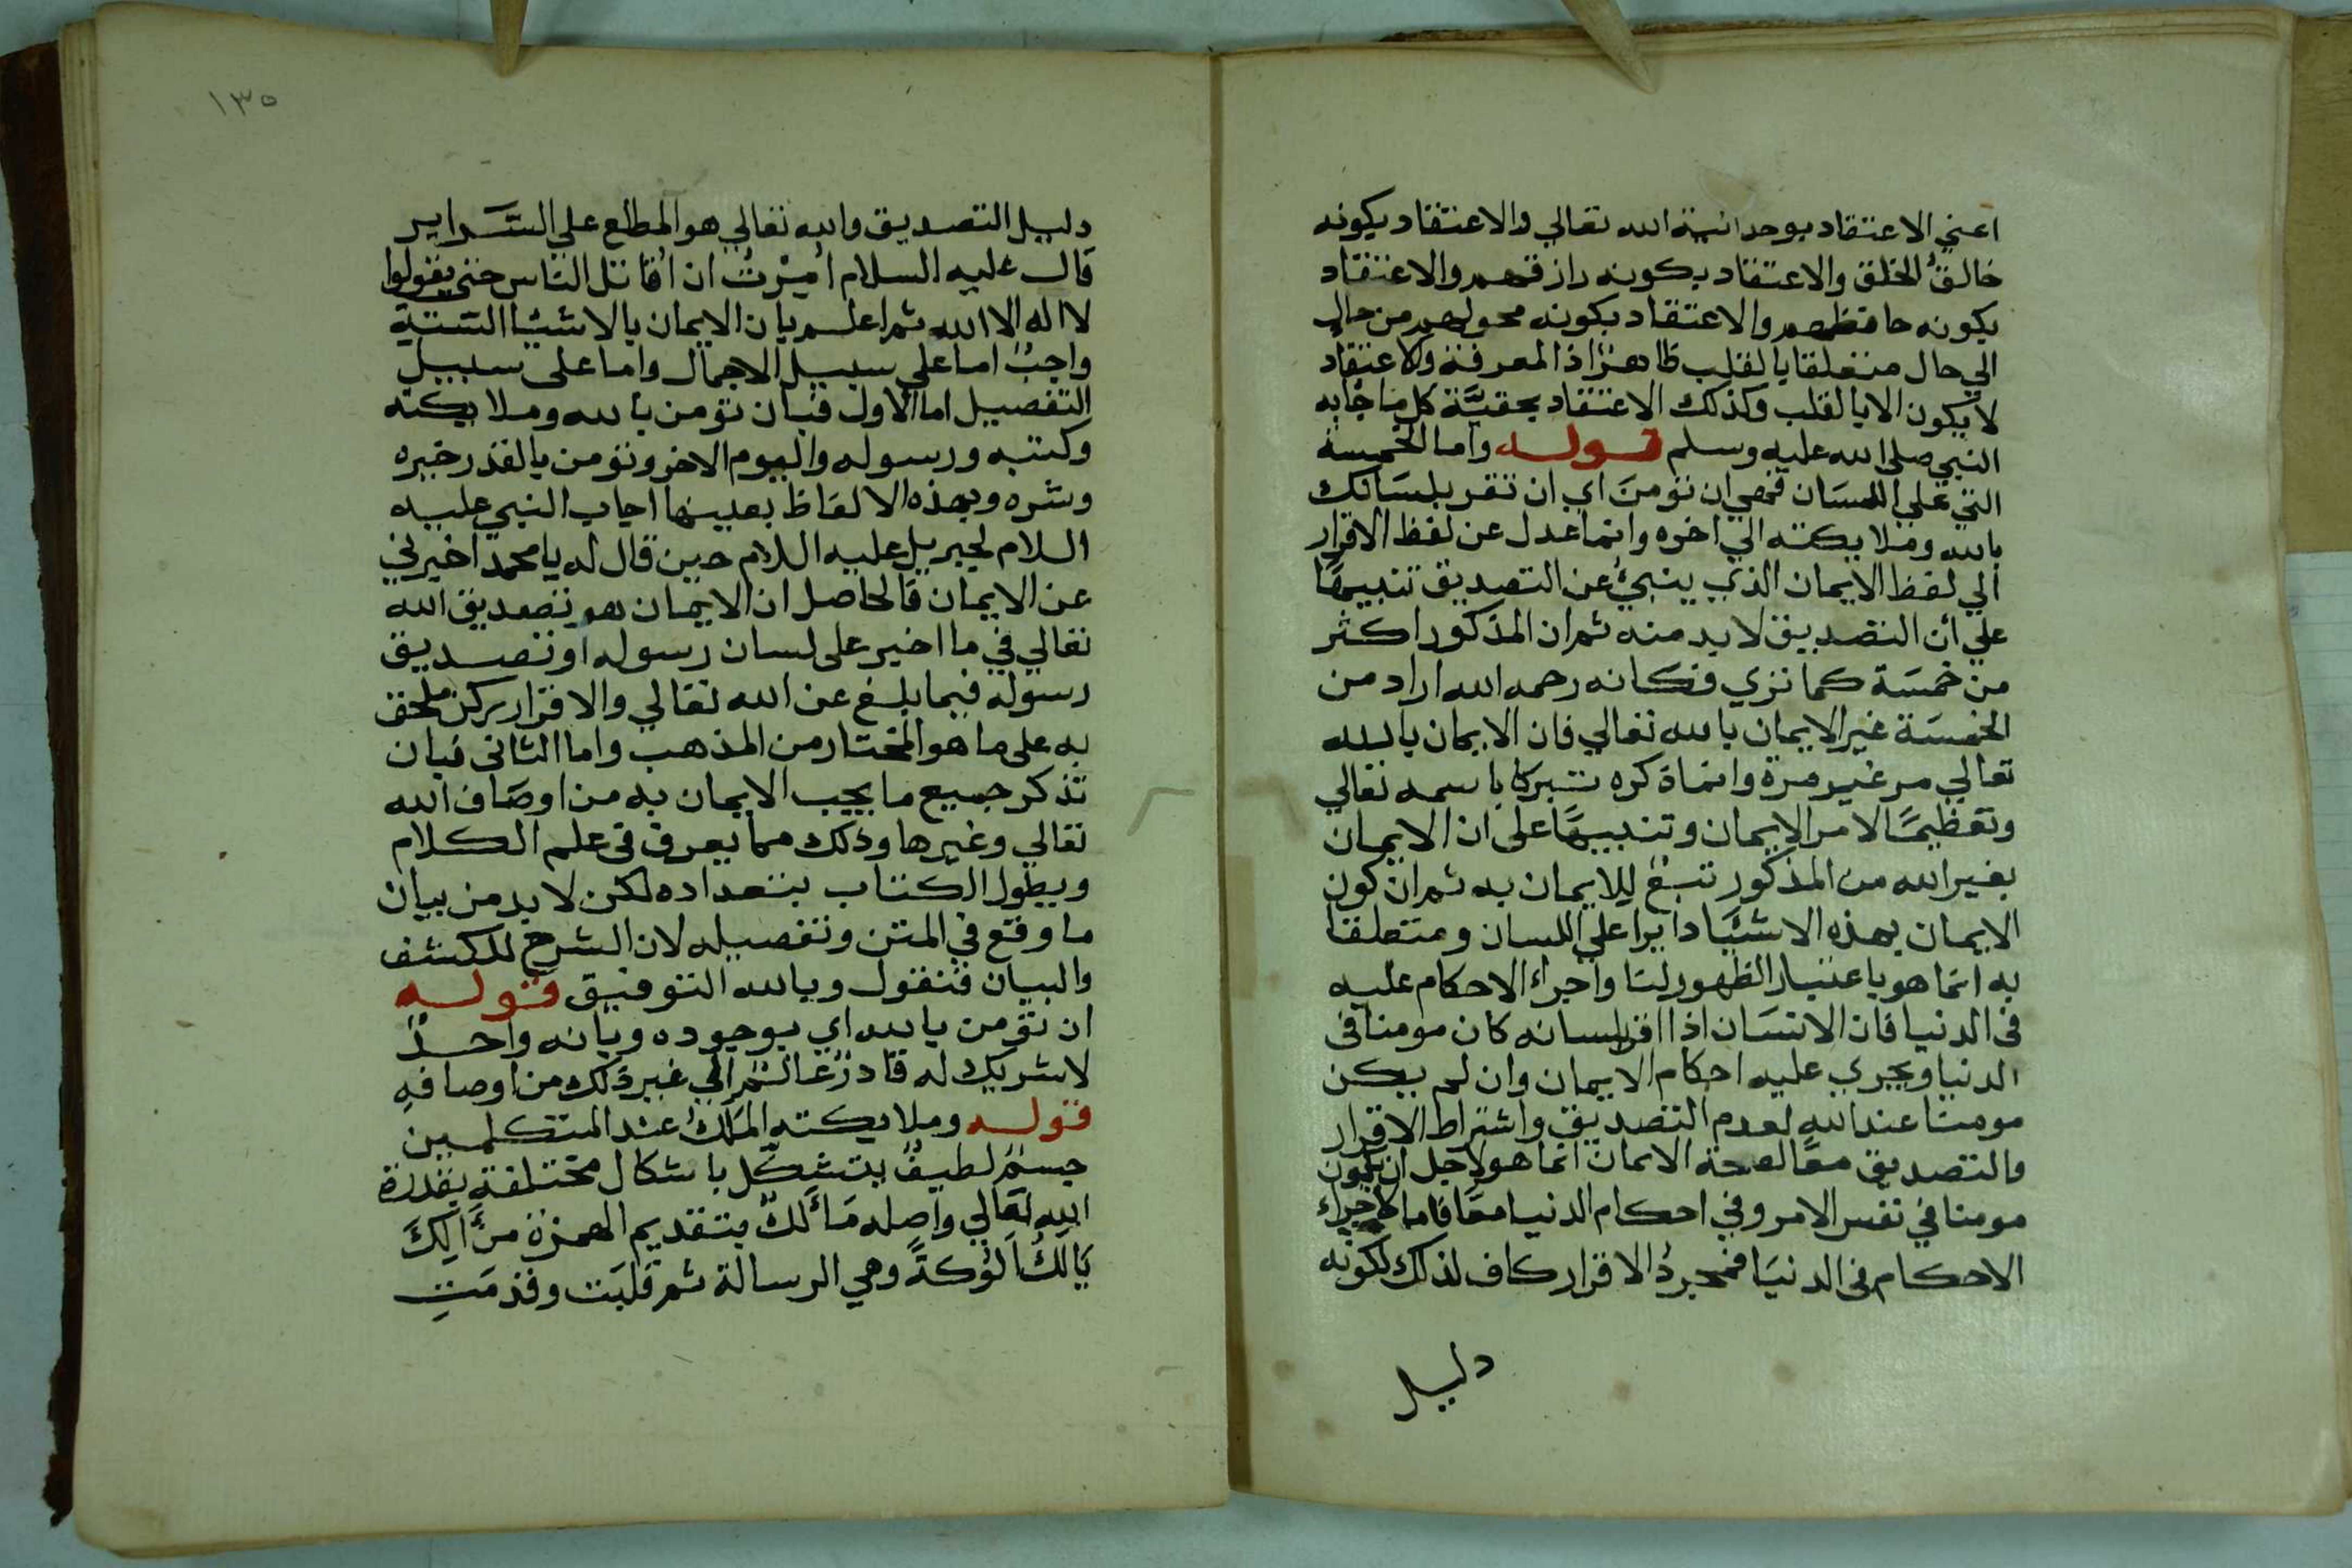 اعني الاعتقاد بوحدانية الله تعالي والاعتقاد بكونه
خالقُ الخلق والاعتقاد بكونه رازقهم والاعتقاد
بكونه حافظهم والاعتقاد بكونه محولهم من حال
الي حال متعلقا بالقلب ظاهرا ذ المعرفة والاعتقاد
لا يكون الا بالقلب وكذلك الاعتقاد بحقيَّة كل ما جابه
النبي صلى الله عليه وسلم قوله واما الخمسة
التي على اللسَان فهي ان تومنَ اي ان تقر بلسَانك
بالله وملايكته الي اخره وانما عدل عن لفظ الاقرار
الي لفظ الايمان الذي ينبئُ عن التصديق تنبيهًا
علي أن التصديق لابد منه ثم ان المذكور اكثر
من خمسَة كما تري فكانه رحمه الله اراد من
الخمسَة غير الايمان بالله تعالي فان الايمان بالله
تعالي مر غير مرة وانما ذكره تبركا باسمه تعالي
وتعظيمًا لامر الايمان وتنبيهًا على ان الايمان
بغير الله من المذكور تبعٌ للايمان به ثم ان كون
الايمان بهذه الاشيَاء دايرا علي اللسان ومتعلقا
به انما هو باعتبار الظهور لنا واجراء الاحكام عليه
في الدنيا فان الانسَان اذا اقر بلسانه كان مومنا في
الدنيا ويجري عليه احكام الايمان وان لم يكن
مومنا عند الله لعدم التصديق واشتراط الاقرار
والتصديق معًا لصحة الايمان انما هو لاجل ان يكون
مومنا في نفس الامر وفي احكام الدنيا معًا فاما لاجراء
الاحكام في الدنيَا فمجردُ الاقرار كاف لذلك لكونه
دليل
١٣٥
دليل التصديق والله تعالي هو المطلع علي السَّراير
قال عليه السلام اُمِرْتُ ان اُقاتل الناس حتى يقولوا
لا اله الا الله ثم اعلم بان الايمان بالاشيا الستة
واجبٌ اما علي سبيل الاجمال واما على سبيل
التفصيل اما الاول فبان تومن بالله وملايكته
وكتبه ورسوله واليوم الاخر وتومن بالقدر خيره
وشره وبهذه الالفاظ بعينها اجاب النبي عليه
السلام لجبريل عليه السلام حين قال له يا محمد اخبرني
عن الايمان فالحاصل ان الايمان هو تصديق الله
تعالي في ما اخبر على لسان رسوله او تصديق
رسوله فيما بلغ عن الله تعالي والاقرار ركن ملحق
به على ما هو المختار من المذهب واما الثاني فبان
تذكر جميع ما يجب الايمان به من اوصَاف الله
تعالي وغيرها وذلك مما يعرف في علم الكلام
ويطول الكتاب بتعداده لكن لابد من بيان
ما وقع في المتن وتفصيله لان الشرح للكشف
والبيان فنقول وبالله التوفيق قوله
ان تومن بالله اي بوجوده وبانه واحدٌ
لاشريك له قادرٌ عالمٌ الي غير ذلك من اوصافهِ
قوله وملايكته المَلَكُ عند المتكلمين
جسمٌ لطيفٌ يتشكّل باشكال مختلفةٍ بقدرة
الله تعالي واصله مَأْلَكٌ بتقديم الهمزة من اَلَكَ
يَالَكُ اَلُوكةً وهي الرسالة ثم قلبَت وقدمَتِ